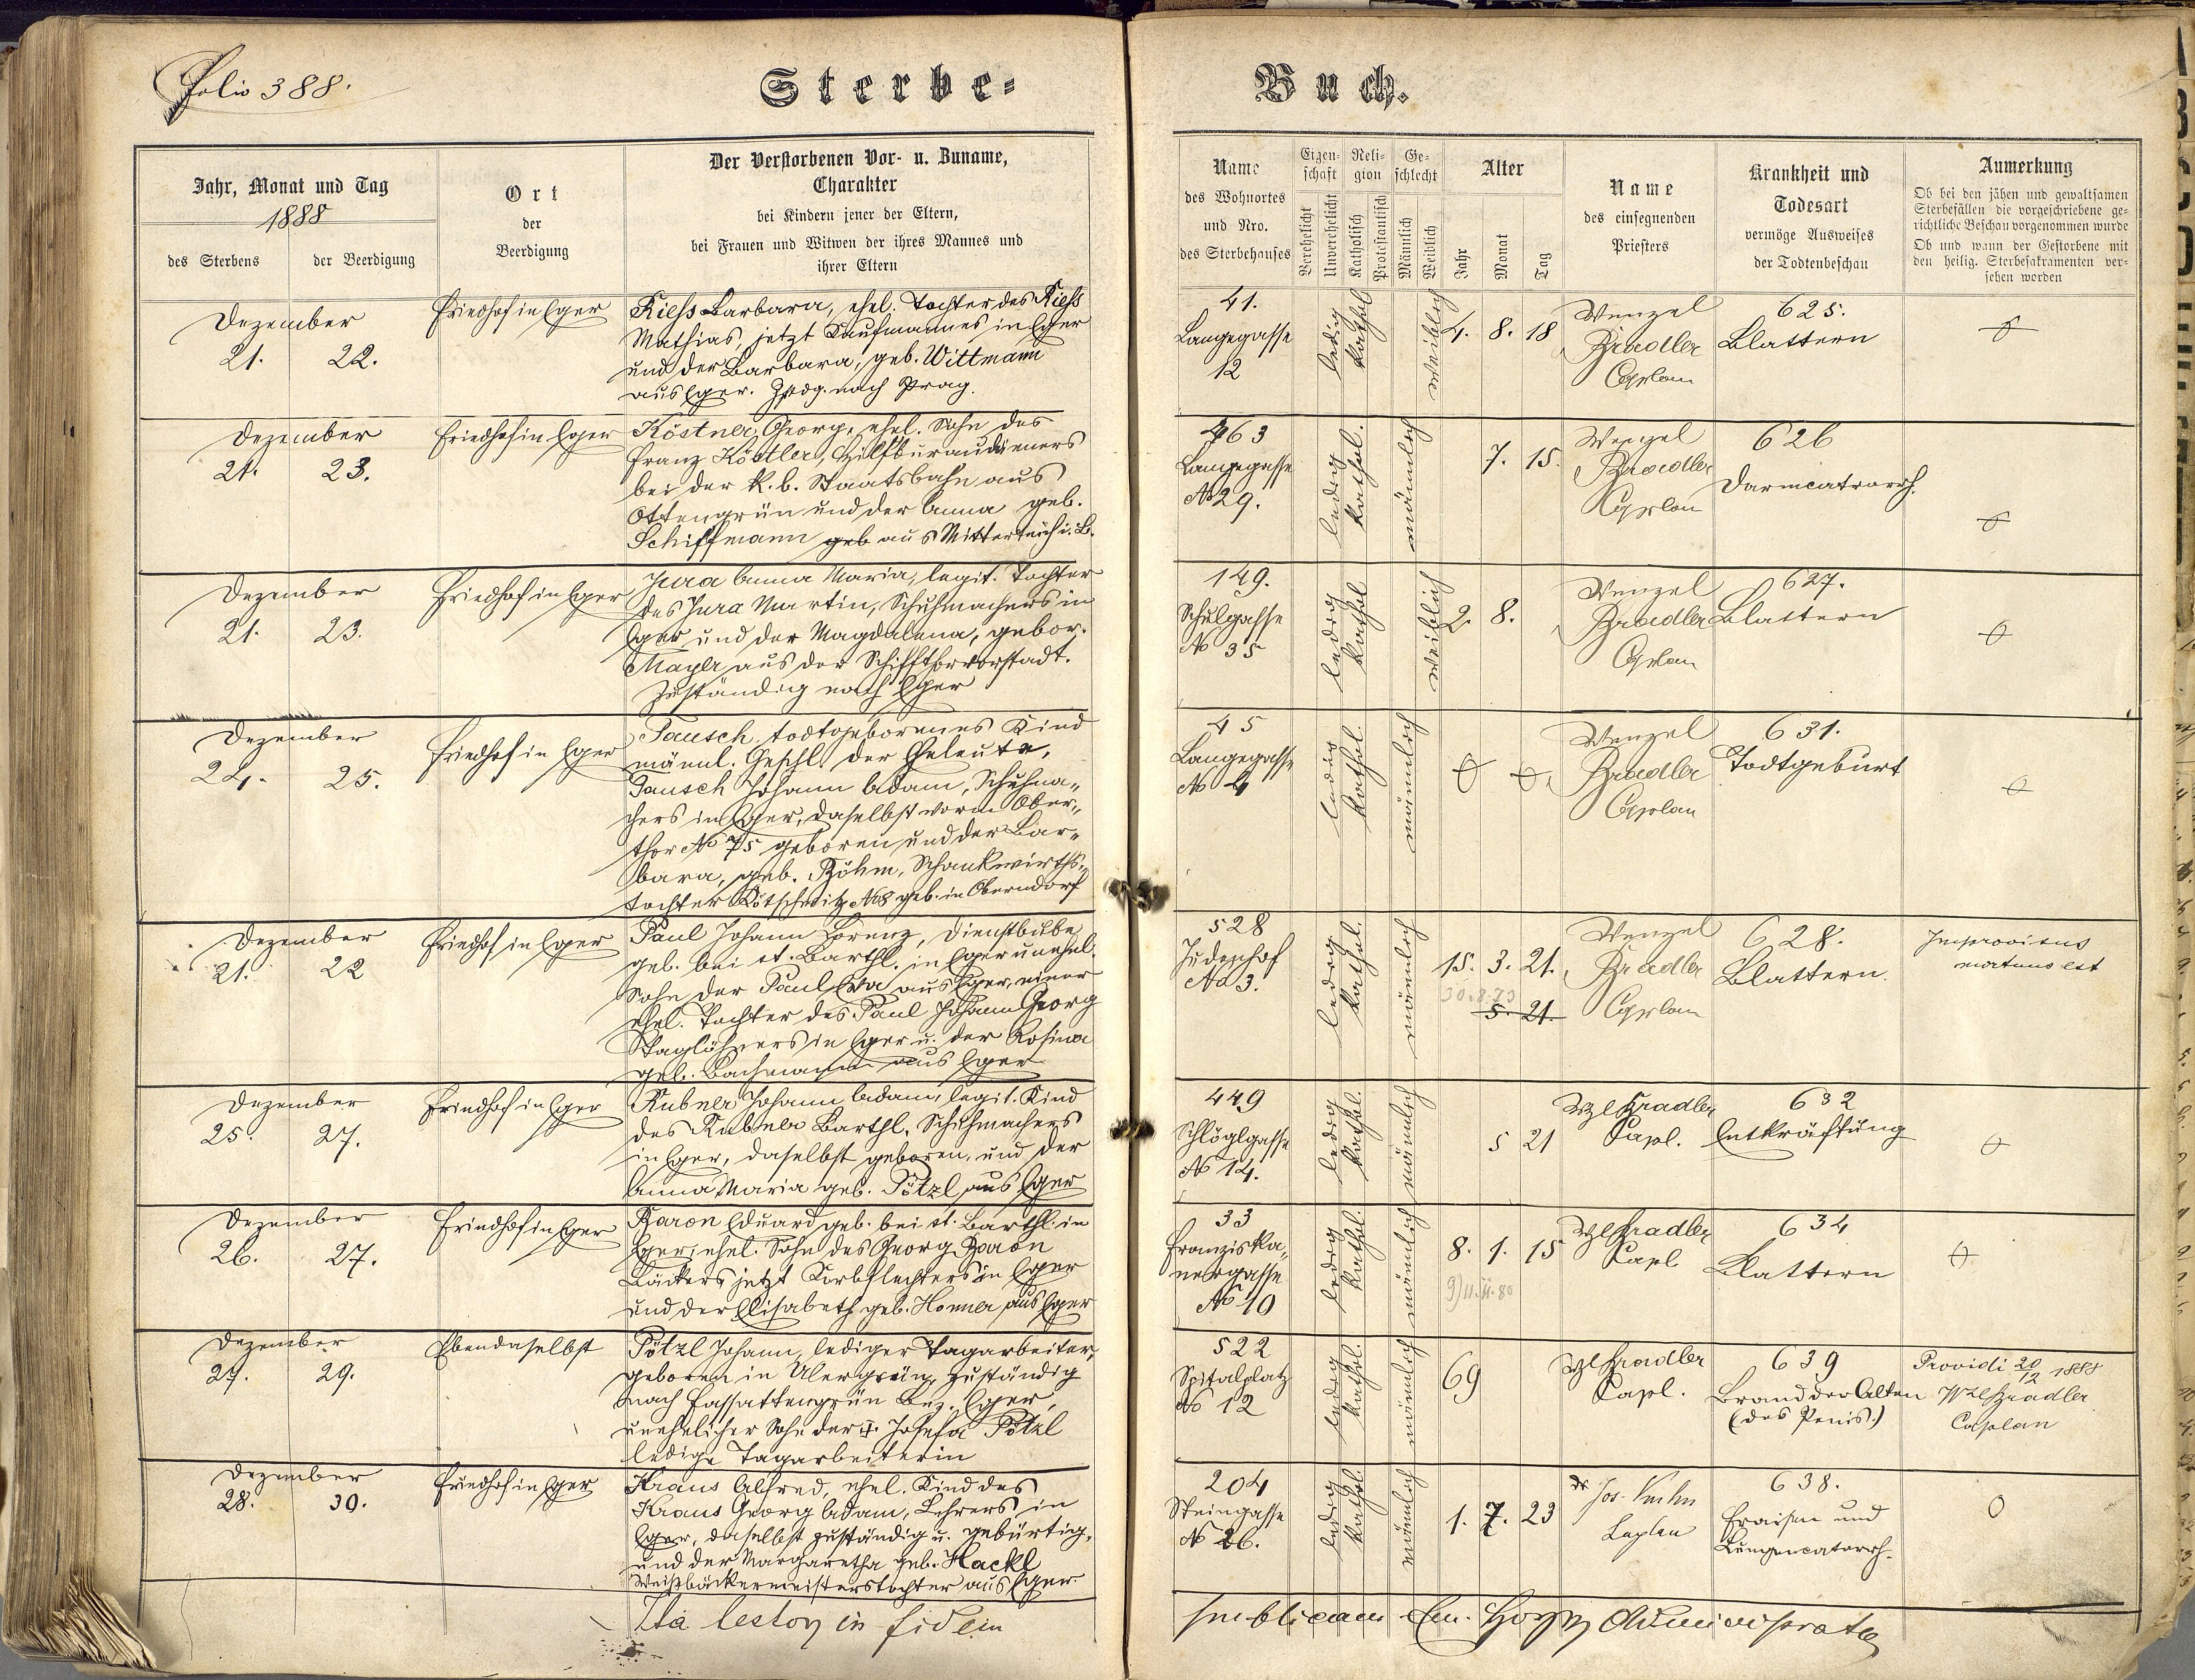 Folio 388.
Sterbe-
Buch.
Jahr, Monat und Tag
1888
des Sterbens
der Beerdigung
Ort
der
Beerdigung
Der Verstorbenen Vor- u. Zuname,
Charakter
bei Kindern jener der Eltern,
bei Frauen und Witwen der ihres Mannes und
ihrer Eltern
Name
des Wohnortes
und Nro.
des Sterbehauses
Eigen-
schaft
Verehelicht
Unverehelicht
Reli-
gion
Katholisch
Protestantisch
Ge-
schlecht
Männlich
Weiblich
Alter
Jahr
Monat
Tag
Name
des einsegnenden
Priesters
Krankheit und
Todesart
vermöge Ausweises
der Todtenbeschau
Anmerkung
Ob bei den jähen und gewaltsamen
Sterbefällen die vorgeschriebene ge-
richtliche Beschau vorgenommen wurde
Ob und wann der Gestorbene mit
den heilig. Sterbesakramenten ver-
sehen worden
Dezember
21. 22.
Friedhof in Eger
Kiehs Barbara, ehel. Tochter des Kiehs
Mathias, jetzt Kaufmannes in Eger
und der Barbara, geb. Wittmann
aus Eger. nach Prag.
41.
Langegasse
12
ledig
kathol
weiblich
4. 8. 18
Wenzel
Bradler
Caplan
625.
Blattern
Dezember
21. 23.
Friedhof in Eger
Köstner, Georg, ehel. Sohn des
Franz Köstler, Hilfbüraudieners
bei der k. b. Staatsbahn aus
Ottengrün und der Anna geb.
Schiffmann geb aus Mitterteich i. B.
463
Langegasse
No 29.
ledig
kathol.
männlich
7. 15.
Wenzel
Bradler
Caplan
626
Darmcatarrh.
Dezember
21. 23.
Friedhof in Eger
Jura Anna Maria, legit. Tochter
des Jura Martin, Schuhmachers in
Eger und der Magdalena, gebor.
Mayer aus der Schifftorvorstadt.
Zuständig nach Eger
149.
Schulgasse
No 35
ledig
kathol
weiblich
2. 8.
Wenzel
Bradler
Caplan
627.
Blattern
Dezember
24. 25.
Friedhof in Eger
Tausch, todtgeborenes Kind
männl. Geschl. der Eheleute,
Tausch Johann Adam, Schuhma„
chers in Eger, daselbst vorm Ober„
thor No 75 geboren und der Bar„
bara, geb. Böhm, Schankwirths„
tochter Kötschwitz No 8 geb. in Oberndorf
45
Langegasse
No 4
ledig
kathol.
männlich
Wenzel
Bradler
Caplan
631.
Todtgeburt
Dezember
21. 22
Friedhof in Eger
Paul Johann Lorenz, Dienstbube
geb. bei st. Barthl. in Eger unehel.
Sohn der Paul Eva aus Eger, einer
ehel. Tochter des Paul Johann Georg
Taglöhners in Eger u. der Rosina
geb. Bachmann aus Eger
528
Judenhof
No 3.
ledig
kathol.
männlich
15. 3. 21.
30.8.73
5. 21.
Wenzel
Bradler
Caplan
628.
Blattern.
Improvisus
mortuus est
Dezember
25. 27.
Friedhof in Eger
Rubner Johann Adam, legit. Kind
des Rubner Barthl, Schuhmachers
in Eger, daselbst geboren, und der
Anna Maria geb. Pötzl aus Eger
449
Schlöglgasse
No 14.
ledig
kathol.
männlich
5 21
Wzl Bradler
Capl.
632
Entkräftung
Dezember
26. 27.
Friedhof in Eger
Baron Eduard geb. bei st. Barthl. in
Eger, ehel. Sohn des Georg Baron
Bäckers jetzt Korbflechters in Eger
und der Elisabeth geb. Honner aus Eger
33
Franziska„
nergasse
No 10
ledig
kathol.
männlich
8. 1. 15
Wzl Bradler
Capl
634
Blattern
Dezember
27. 29.
Ebendaselbst
Pötzl Johann, lediger Tagarbeiter,
geboren in Ulersgrün, zuständig
nach Fassattengrün Bez. Eger,
unehelicher Sohn der Josefa Pötzl
ledige Tagarbeiterin
522
Spitalplatz
No 12
ledig
kathol.
männlich
69
Wzl Bradler
Capl.
639
Brand der Alten
(des Penis.)
Providi 20/12 1888
Wzl Bradler
Caplan
Dezember
28. 30.
Friedhof in Eger
Kraus Alfred, ehel. Kind des
Kraus Georg Adam, Lehrers in
Eger, daselbst zuständig u. gebürtig,
und der Margaretha geb. Hackl
Weißbäckermeisterstochter aus Eger.
204
Steingasse
No 26.
ledig
kathol
männlich
1. 7. 23
Jos.
Caplan
638.
Fraisen und
Lungencatarrh.
Ita testor in fidem
publicam